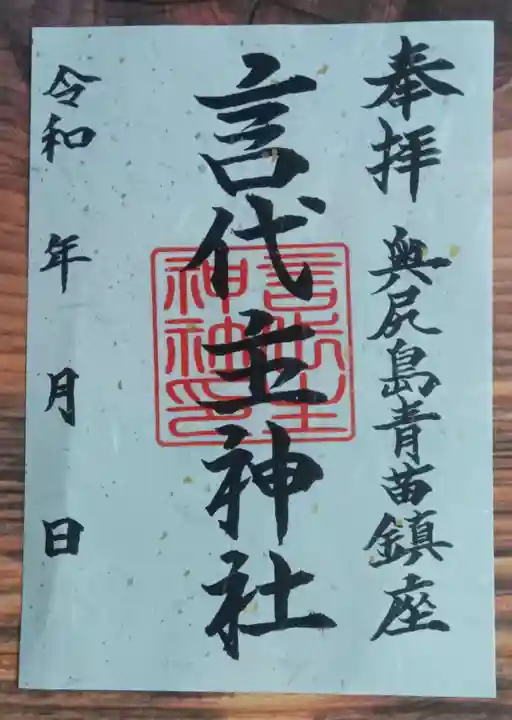 奉拝 奥尻島青苗鎮座
言代主神社
言代主
神社印
令和 年 月 日